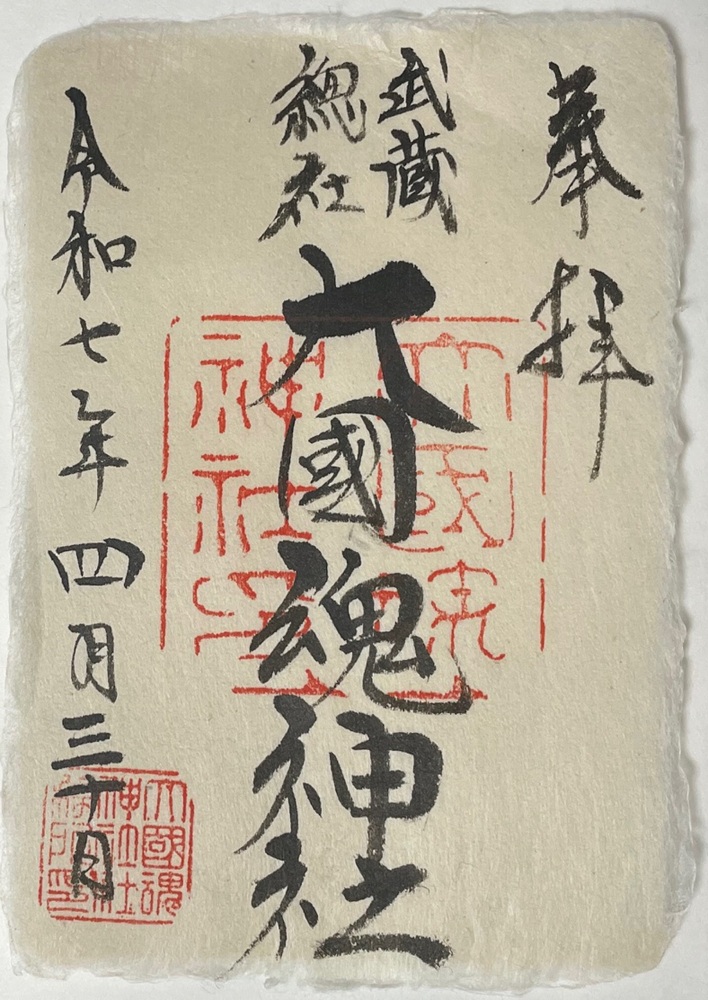 奉拝
武蔵
総社
大國魂神社
令和七年四月三十日
大國魂
神社印
大國魂
神社